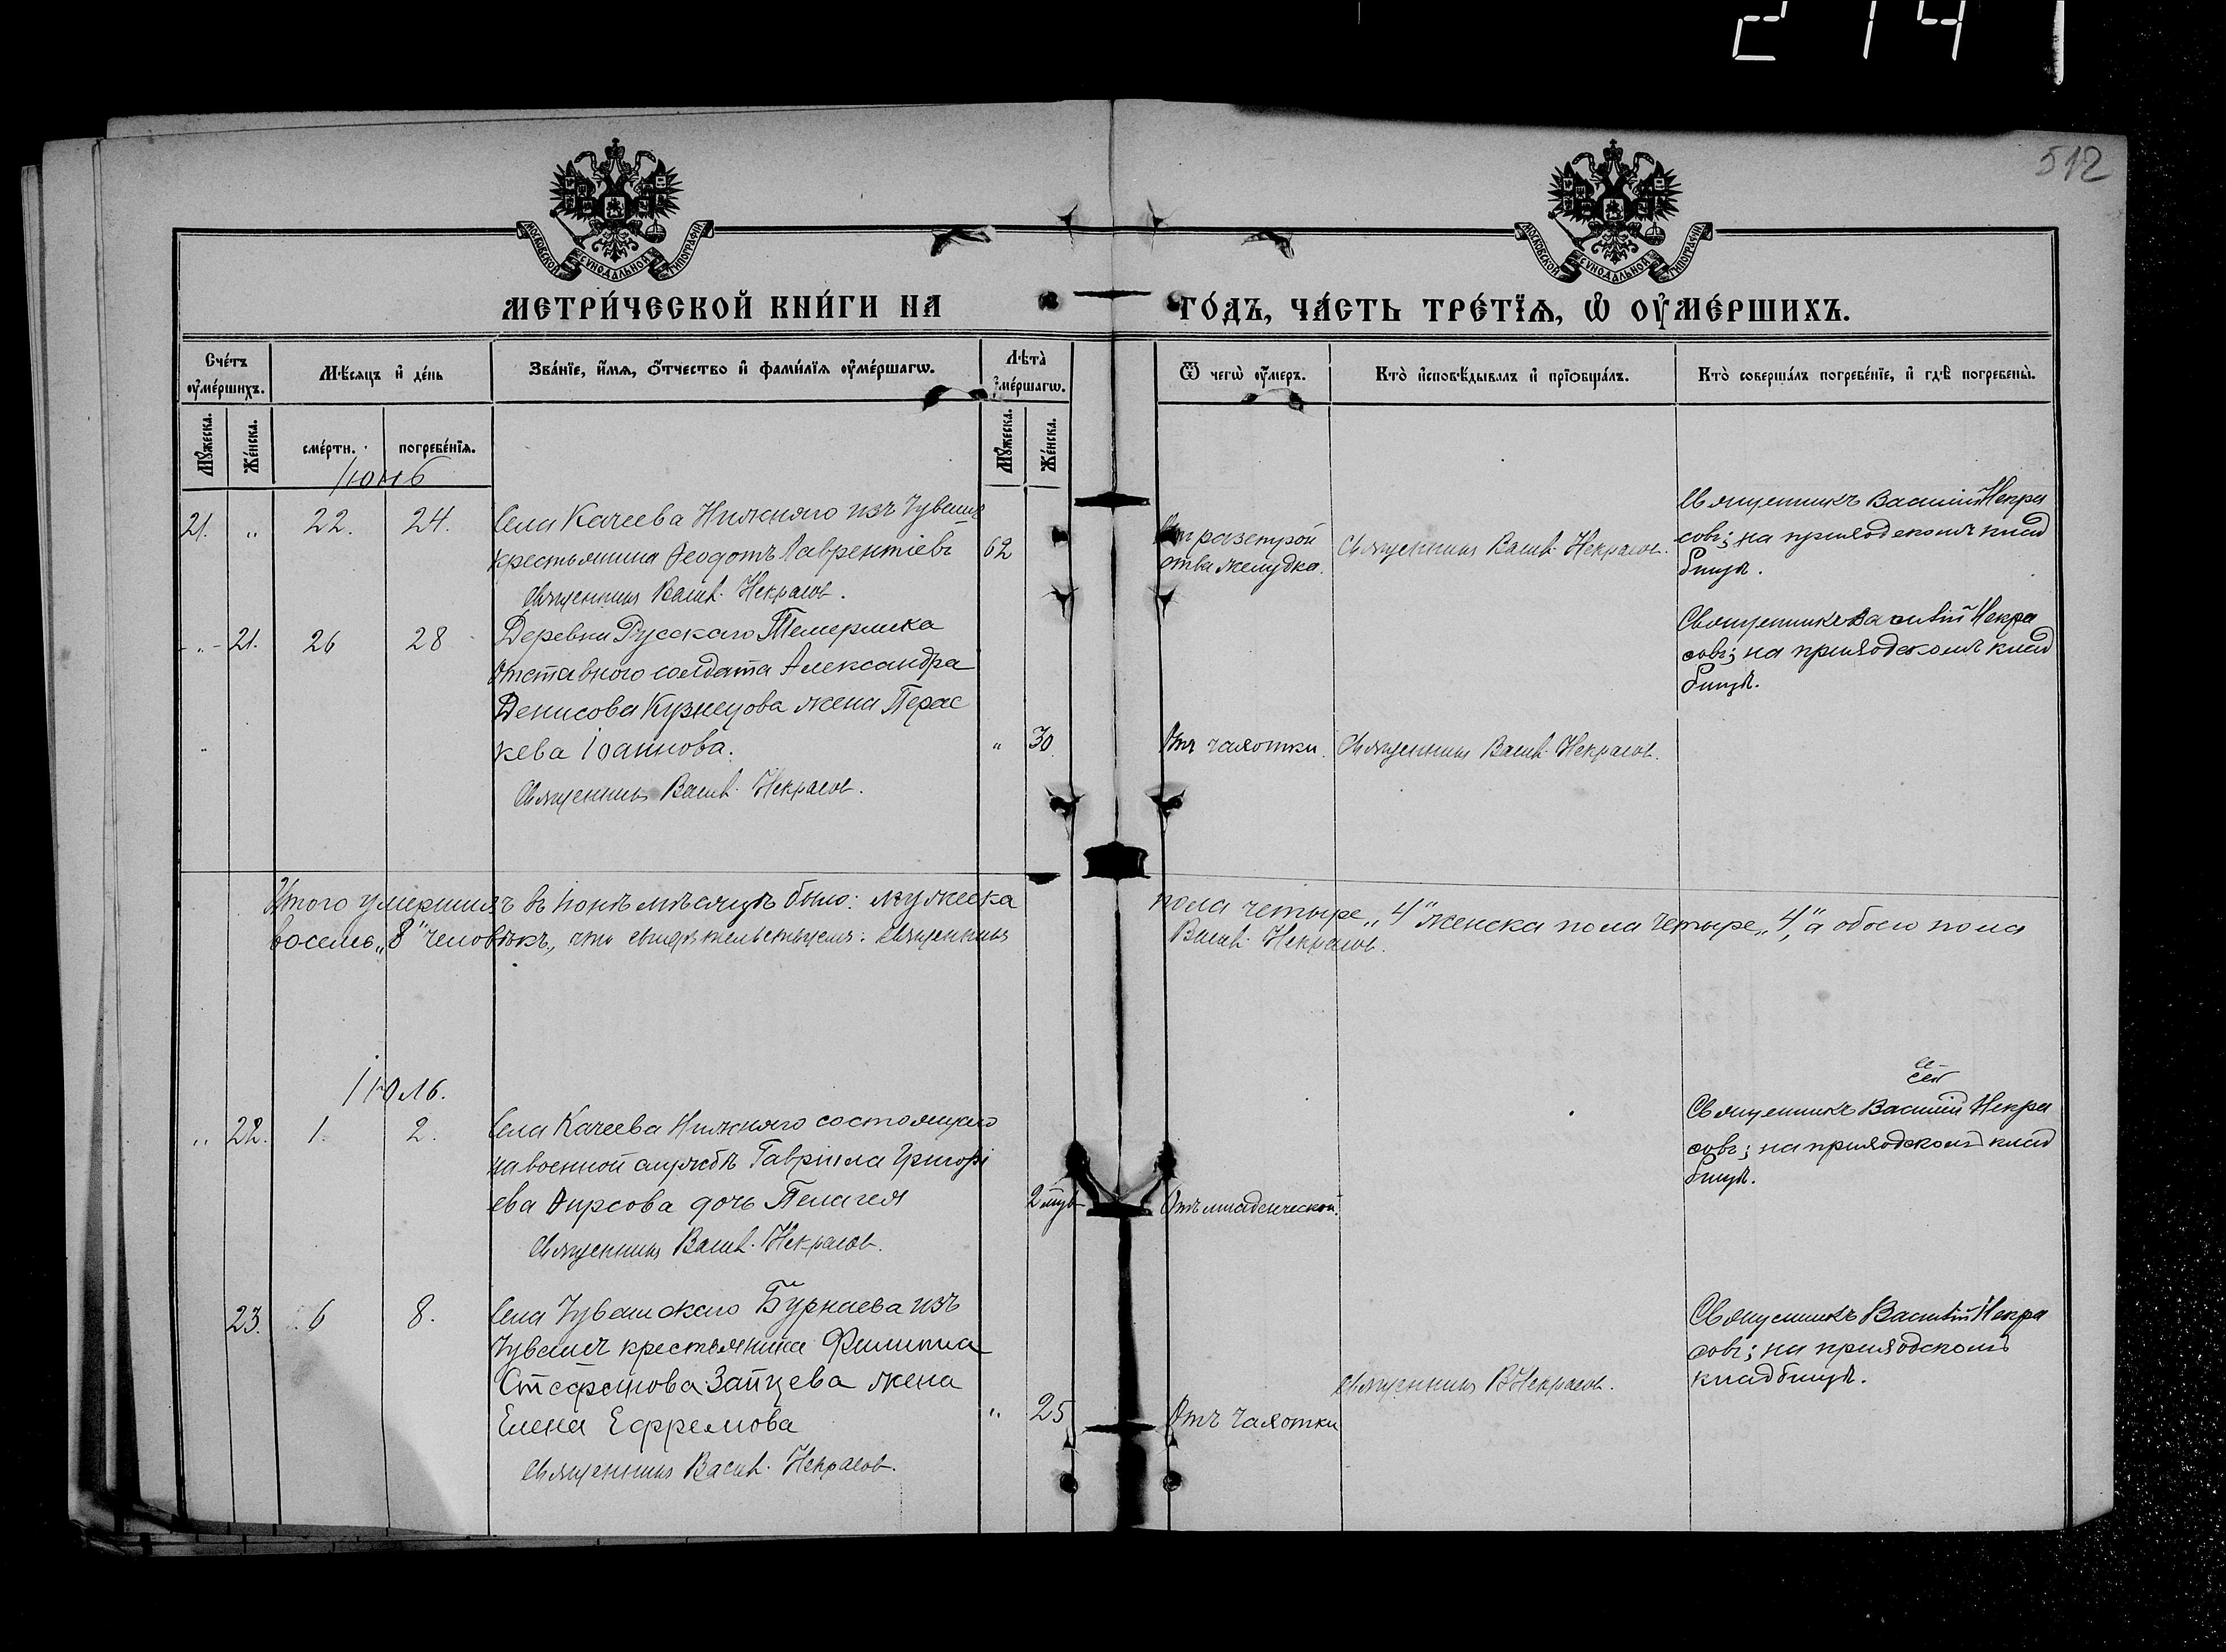 2141
512
МОСКОВСКОЙ СѴНОДАЛЬНОЙ ТИПОГРАФІИ
МОСКОВСКОЙ СѴНОДАЛЬНОЙ ТИПОГРАФІИ
МЕТРИ́ЧЕСКОЙ КНИ́ГИ НА
ГО́ДЪ, ЧА́СТЬ ТРЕ́ТЇѦ, Ѡ҆ ОУ҆МЕ́РШИХЪ.
Сче́тъ
оу҆ме́ршихъ.
Мѣ́сяцъ и҆ де́нь
Зва́нїе, и҆́мѧ, о҆́тчество и҆ фами́лїѧ оу҆ме́ршагѡ.
Лѣ́та̀
оу҆ме́ршагѡ.
Ѿ чегѡ̀ оу҆́меръ.
Кто̀ и҆сповѣ́дывалъ и҆ прїѡбща́лъ.
Кто̀ соверша́лъ погребе́нїе, и҆ гдѣ̀ погребены̀.
Мꙋ́жеска.
Же́нска.
сме́рти.
погребе́нїѧ.
Мꙋ́жеска.
Же́нска.
Іюнь
21. " 22. 24. Села Качеева Нижняго изъ Чувашъ
крестьянина Ѳеодотъ Лаврентіевъ 62
Священникъ Васил. Некрасов.
Отъ разстрой
ства желудка.
Священникъ Васил. Некрасов.
Священникъ Василій Некра
совъ; на приходскомъ клад
бищѣ.
" 21. 26 28 Деревни Русскаго Темерлика
отставного солдата Александра
Денисова Кузнецова жена Парас
кева Іоаннова. " 30
Священникъ Васил. Некрасов.
Отъ чахотки. Священникъ Васил. Некрасов.
Священникъ Василій Некра
совъ; на приходскомъ клад
бищѣ.
Итого умершихъ въ Іюнѣ мѣсяцѣ было: мужеска пола четыре „4" женска пола четыре „4", а обоего пола
восемь „8" человѣкъ, что свидѣтельствуемъ: Священникъ Васил. Некрасов.
Іюль.
" 22. 1. 2. Села Качеева Нижняго состоящаго
на военной службѣ Гавріила Григорі
ева Ѳирсова дочь Пелагея 2 мѣц.
Священникъ Васил. Некрасов.
Отъ младенческой.
Священникъ Василій Некра
совъ; на приходскомъ клад
бищѣ.
23. 6 8. Села Чувашскаго Бурнаева изъ
Чувашъ крестьянина Филиппа
Стефанова Зайцева жена
Елена Ефремова " 25
Священникъ Васил. Некрасов.
Отъ чахотки
Священникъ В Некрасов.
Священникъ Василій Некра
совъ; на приходскомъ
кладбищѣ.